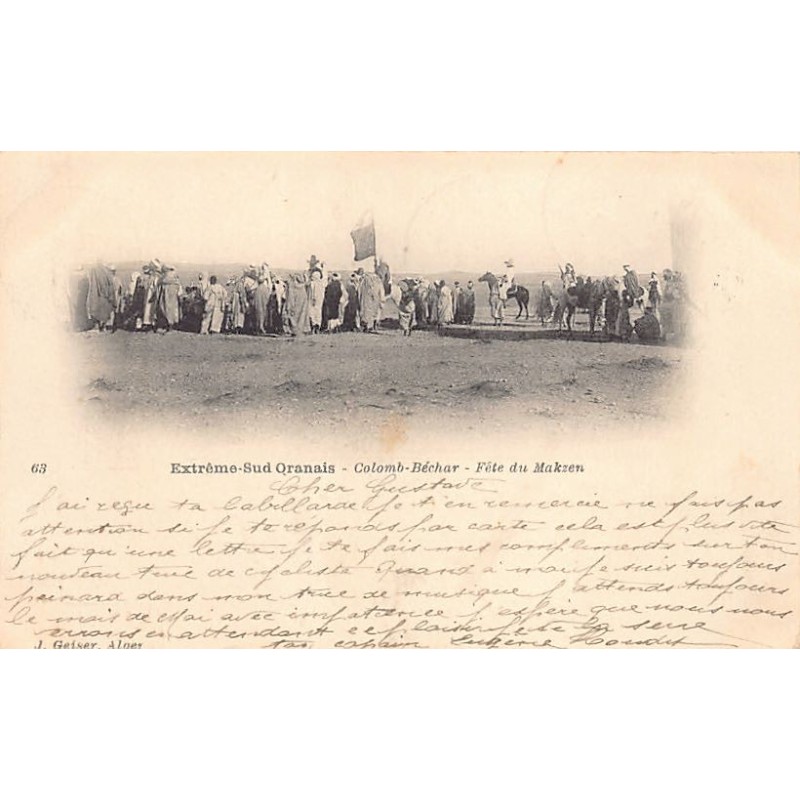 63 Extrême-Sud Oranais - Colomb-Béchar - Fête du Makzen
Cher Gustave
J'ai reçu ta babillarde je t'en remercie ne fais pas
attention si je te reponds par carte cela est plus vite
fait qu'une lettre je te fais mes compliments sur ton
nouveau truc de cycliste Quand à moi je suis toujours
peinard dans mon truc de musique j'attends toujours
le mois de Mai avec impatence j'espère que nous nous
errons en attendant ce plaisir je te la serre
ton copain Eugène
J. Geiser, Alger